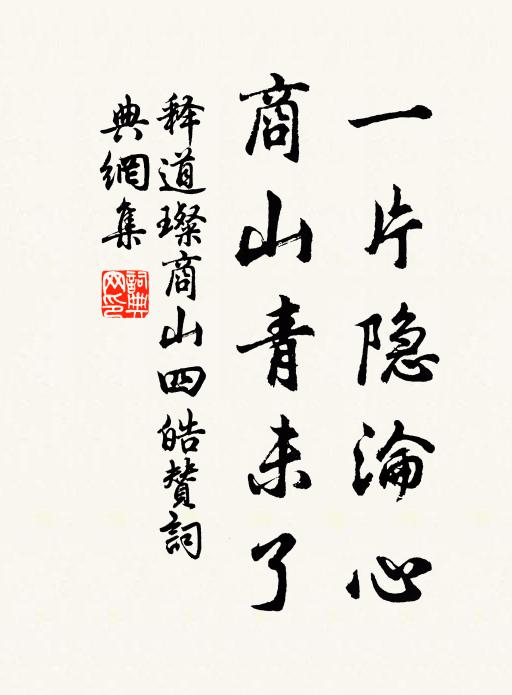 一片隐淪心
商山青未了
释道璨商山四皓賛詞
典網集
詞典
网印